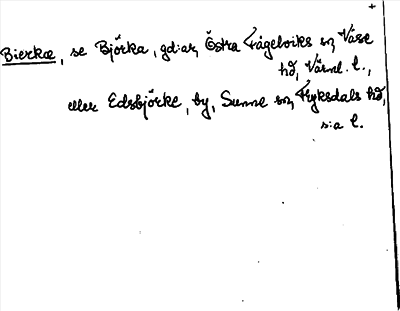 +
Bierkæ, se Björka, gd:ar, Östra Fågelviks sn, Väse
hd, Värml. l.,
eller Edsbjörke, by, Sunne sn, Fryksdals hd,
s:a l.